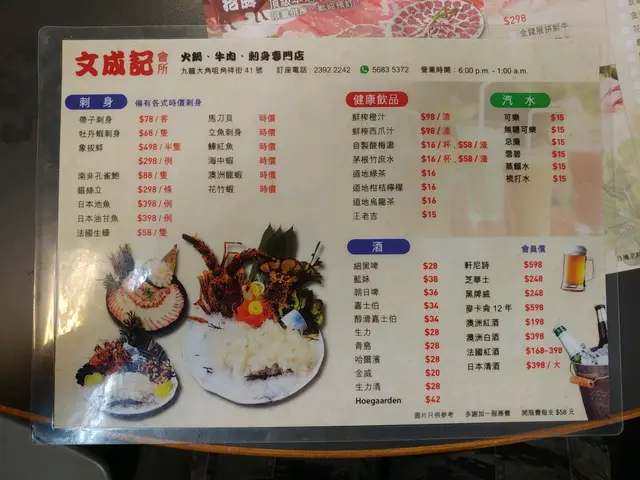 $298
文成記 會所
火鍋、牛肉、刺身專門店
九龍大角咀角祥街 41 號 訂座電話:2392 2242 5683 5372 營業時間:6:00 p.m. - 1:00 a.m.
刺身 備有各式時價刺身
帶子刺身 $78 / 客
牡丹蝦刺身 $68 / 隻
象拔蚌 $498 / 半隻
$298 / 例
南非孔雀鮑 $88 / 隻
銀絲立 $298 / 條
日本池魚 $398 / 例
日本油甘魚 $398 / 例
法國生蠔 $58 / 隻
馬刀貝 時價
立魚刺身 時價
鱆紅魚 時價
海中蝦 時價
澳洲龍蝦 時價
花竹蝦 時價
健康飲品
鮮榨橙汁 $98 / 渣
鮮榨西瓜汁 $98 / 渣
自製酸梅湯 $16 / 杯﹐$58 / 渣
茅根竹庶水 $16 / 杯﹐$58 / 渣
道地綠茶 $16
道地柑桔檸檬 $16
道地烏龍茶 $16
王老吉 $15
汽水
可樂 $15
無糖可樂 $15
忌廉 $15
雪碧 $15
蒸餾水 $15
梳打水 $15
酒
細黑啤 $28
藍妹 $38
朝日啤 $36
嘉士伯 $34
醇滑嘉士伯 $34
生力 $28
青島 $28
哈爾濱 $28
金威 $20
生力清 $28
Hoegaarden $42
會員價
軒尼詩 $598
芝華士 $248
黑牌威 $248
麥卡侖 12 年 $598
澳洲紅酒 $198
澳洲白酒 $398
法國紅酒 $168-398
日本清酒 $398 / 大
圖片只供參考 多謝加一服務費 開瓶費每支 $58 元